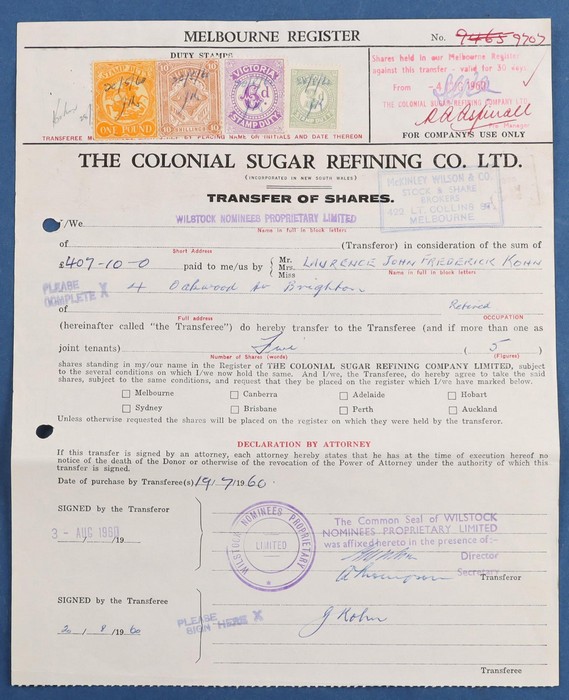 MELBOURNE REGISTER
No. 9465 9707
DUTY STAMPS
STAMP DUTY
ONE POUND
10 10
SHILLINGS
VICTORIA
6d
STAMP DUTY
Shares held in our Melbourne Register
against this transfer - valid for 30 days
From -4 AUG 1960
THE COLONIAL SUGAR REFINING COMPANY LTD.
Manager
TRANSFEREE PLACING NAME OR INITIALS AND DATE THEREON
FOR COMPANY'S USE ONLY
THE COLONIAL SUGAR REFINING CO. LTD.
(INCORPORATED IN NEW SOUTH WALES)
TRANSFER OF SHARES.
McKINLEY WILSON & CO.
STOCK & SHARE
BROKERS
422 LT. COLLINS ST.
MELBOURNE
I/We WILSTOCK NOMINEES PROPRIETARY LIMITED
Name in full in block letters
of (Transferor) in consideration of the sum of
Short Address
£407-10-0 paid to me/us by { Mr. Mrs. Miss LAWRENCE JOHN FREDERICK KOHN
Name in full in block letters
PLEASE COMPLETE X
4 Oakwood Av Brighton
of Retired
Full address OCCUPATION
(hereinafter called "the Transferee") do hereby transfer to the Transferee (and if more than one as
joint tenants) Five ( 5 )
Number of Shares (words) (Figures)
shares standing in my/our name in the Register of THE COLONIAL SUGAR REFINING COMPANY LIMITED, subject
to the several conditions on which I/we now hold the same. And I/we, the Transferee, do hereby agree to take the said
shares, subject to the same conditions, and request that they be placed on the register which I/we have marked below.
Melbourne Canberra Adelaide Hobart
Sydney Brisbane Perth Auckland
Unless otherwise requested the shares will be placed on the register on which they were held by the transferor.
DECLARATION BY ATTORNEY
If this transfer is signed by an attorney, each attorney hereby states that he has at the time of execution hereof no
notice of the death of the Donor or otherwise of the revocation of the Power of Attorney under the authority of which this
transfer is signed.
Date of purchase by Transferee(s) 19/7/1960.
SIGNED by the Transferor
3 - AUG 1960
/ /19
WILSTOCK NOMINEES PROPRIETARY
LIMITED
The Common Seal of WILSTOCK
NOMINEES PROPRIETARY LIMITED
was affixed hereto in the presence of:-
Director
Secretary
Transferor
SIGNED by the Transferee
20 / 8 /1960
PLEASE SIGN HERE X
J Kohn
Transferee